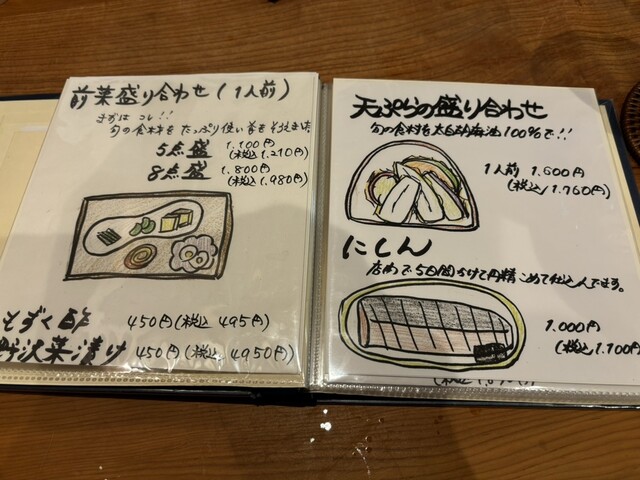 前菜盛り合わせ(1人前)
まずは コレ!!
旬の食材を たっぷり使い
5点盛 1.100円
(税込 1.210円)
8点盛 1.800円
(税込 1.980円)
もずく酢 450円(税込 495円)
野沢菜漬け 450円(税込 4950円)
天ぷらの盛り合わせ
旬の食材を太白胡麻油100%で!!
1人前 1.600円
(税込 1.760円)
にしん
店内で5日間かけて丹精こめて仕込んでます。
1.000円
(税込 1.100円